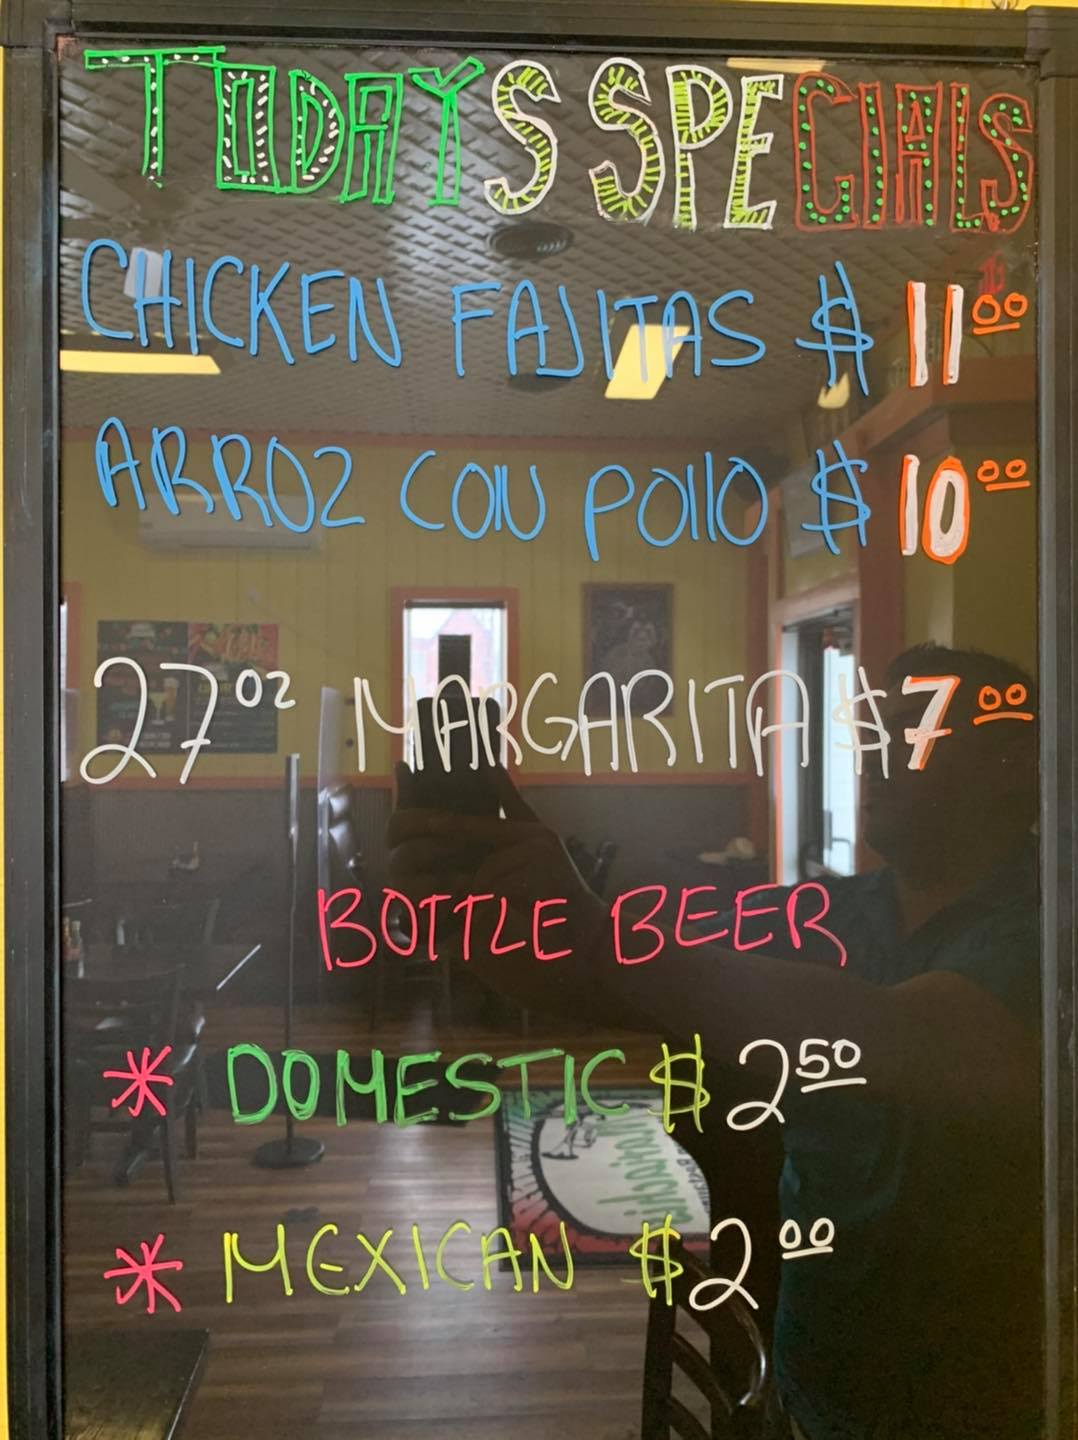 TODAYS SPECIALS
CHICKEN FAJITAS $ 11 00
ARROZ CON POllO $ 10 00
27 oz MARGARITA $ 7 00
BOTTLE BEER
* DOMESTIC $ 2 50
* MEXICAN $ 2 00